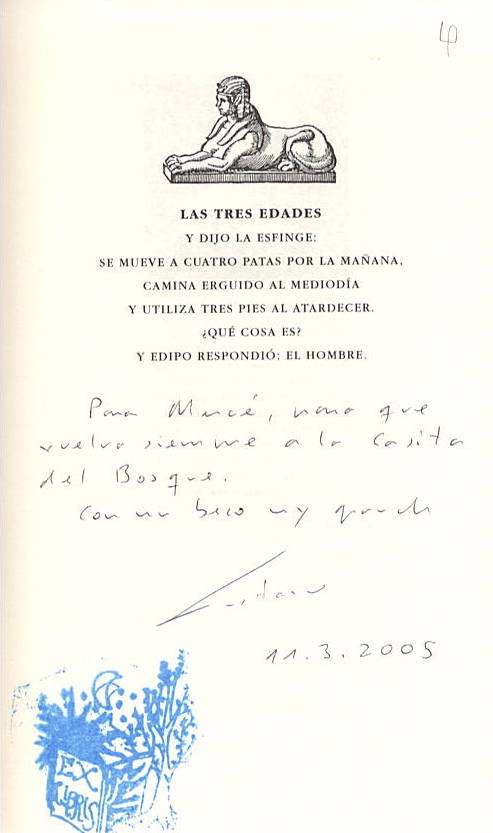 LAS TRES EDADES
Y DIJO LA ESFINGE:
SE MUEVE A CUATRO PATAS POR LA MAÑANA,
CAMINA ERGUIDO AL MEDIODÍA
Y UTILIZA TRES PIES AL ATARDECER.
¿QUÉ COSA ES?
Y EDIPO RESPONDIÓ: EL HOMBRE.
Para Mercé, para que
vuelva siempre a la Casita
del Bosque.
Con un beso muy grande
11.3.2005
EX
LIBRIS